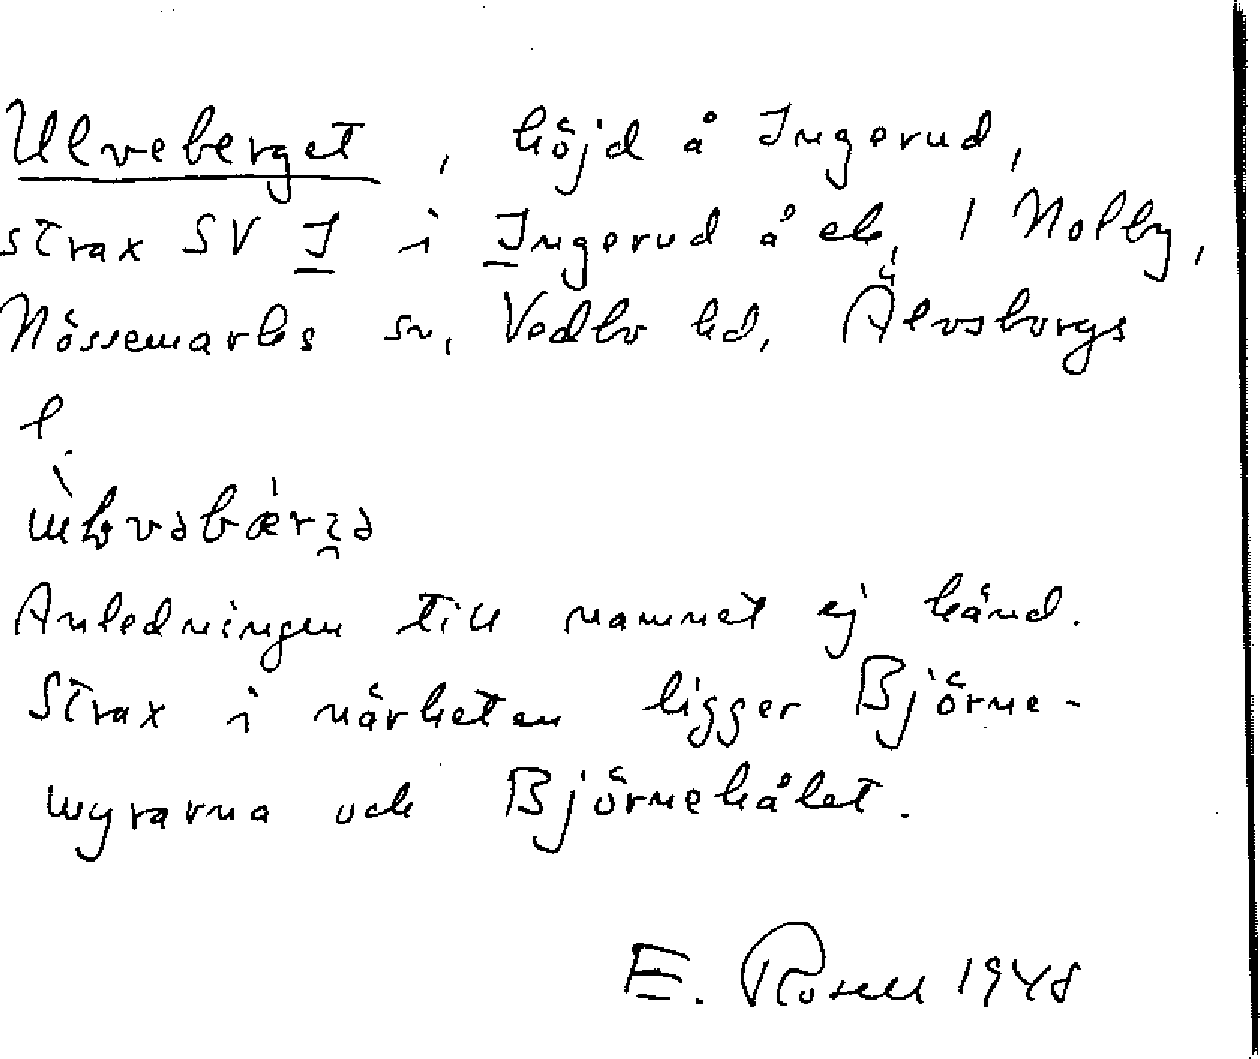 Ulveberget, höjd å Ingerud,
strax SV I i Ingerud å ek. 1 Nolby,
Nössemarks sn, Vedbo hd, Älvsborgs
l.
Anledningen till namnet ej känd.
Strax i närheten ligger Björne-
myrarna och Björnehålet.
E. Rosell 1948